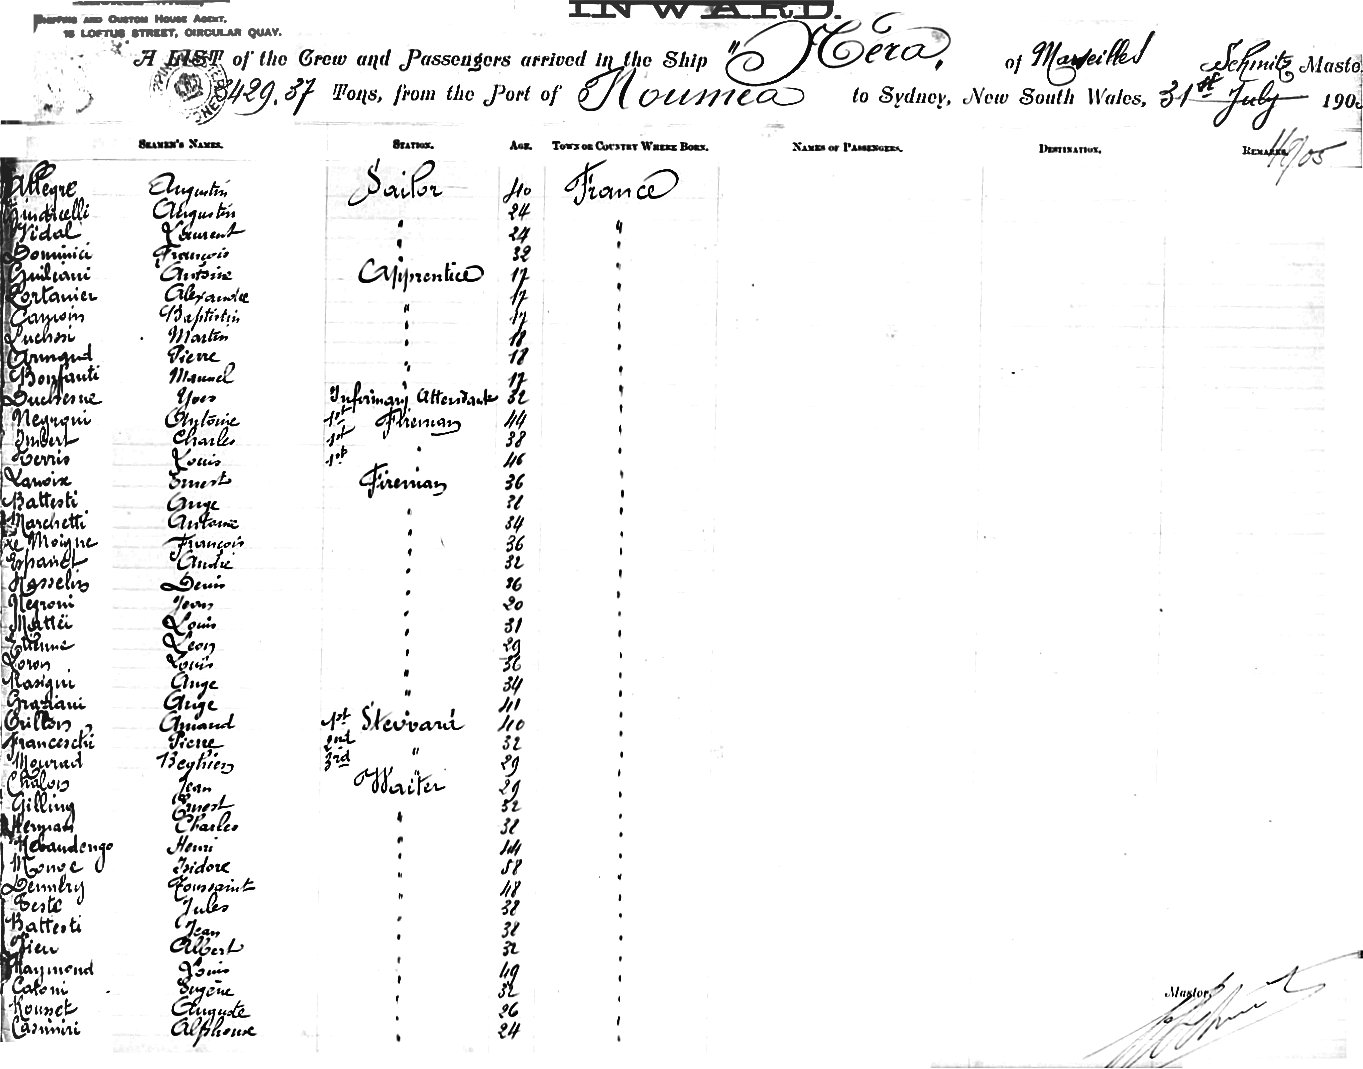 INWARD.
SHIPPING AND CUSTOM HOUSE AGENT,
18 LOFTUS STREET, CIRCULAR QUAY.
A LIST of the Crew and Passengers arrived in the Ship "Néra, of Marseilles Schmitz Maste
3429.37 Tons, from the Port of Noumea to Sydney, New South Wales, 31st July 190
SEAMEN'S NAMES. STATION. AGE. TOWN OR COUNTRY WHERE BORN. NAMES OF PASSENGERS. DESTINATION. REMARKS.
Allegre Augustin Sailor 40 France
Giudicelli Augustin 24
Vidal Laurent " 24 "
Dominici François " 32 "
Guiliani Antoine Apprentice 17 "
Cortanier Alexandre 17 "
Camoin Baptistin " 17 "
Luchesi Martin " 18 "
Armand Pierre " 18 "
Bonfanti Manuel " 17 "
Duchesne Yves Infirmary Attendant 32 "
Negroni Antoine 1st Fireman 44 "
Imbert Charles 1st 38 "
Terris Louis 1st " 46 "
Lanoix Ernest Fireman 36 "
Battesti Ange 31 "
Marchetti Antoine " 34 "
Le Moigne François " 36 "
Espanet André " 32 "
Hasselin Denis " 26 "
Negroni Jean " 20 "
Mattéi Louis " 31 "
Etienne Leon " 29 "
Loron Louis " 36 "
Rasigni Ange " 34 "
Graziani Ange " 41 "
Grillon Amand 1st Steward 40 "
Franceschi Pierre 2nd 32 "
Mourad Beghien 3rd " 29 "
Chalon Jean Waiter 29 "
Gilling Ernest 32 "
Herman Charles " 31 "
Rebaudengo Henri " 44 "
Monoe Isidore " 58 "
Dennery Toussaint " 48 "
Teste Jules " 38 "
Battesti Jean " 31 "
Vieu Albert " 32 "
Raymond Louis " 49 "
Catoni Eugène " 32 "
Rousset Auguste " 26 "
Casimiri Alphonse " 24 "
Master,